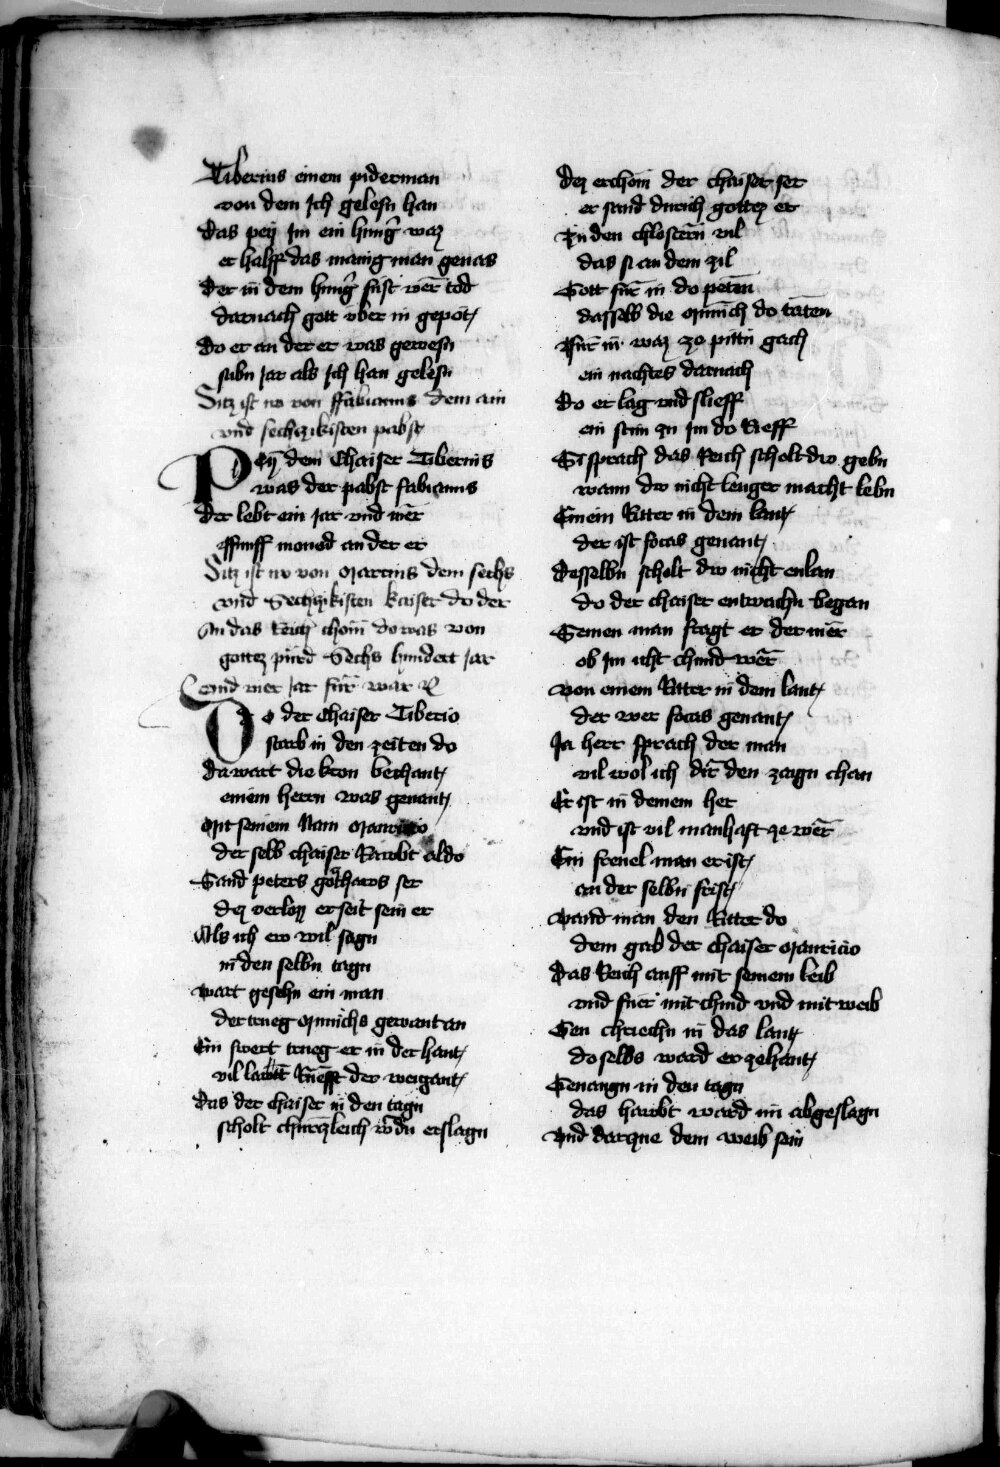 Tiberius einem piderman
von dem Ich gelesn han
Das pey Im ein hung̑ waz
er halff das manig man genas
Der in dem hung̑ sust wer̄ tod
darnach gott vber in gepot
Do er an der er was gewesn
sibn Jar als Ich han gelesn
Ditz ist no von ffabianus dem ain
vnd sechczikisten pabst
Pey dem Chaiser Tiberius
was der pabst fabianus
Der lebt ein Jar vnd mer̄
ffunff moned an der er
Ditz ist no von Marcius dem sechs
vnd Sechczikisten kaiser do der
An das Reich chom do was von
gottez pürd Sechs hundert Jar
vnd vier Jar fur̄ war
Do der Chaiser Tiberio
starb in den zeiten do
Da wart die kron bechant
einem herrn was genant
Mit seinem Nam Mauricio
der selb chaiser Rawbt aldo
Sand peters gothaws ser
dez verlozz er seit sein er
Als ich ew wil sagn
in den selbn tagn
Wart gesehn ein man
der trueg Munichs gewant an
Ein swert trueg er in der hant
vil lawtt Rüefft der weigant
Das der Chaiser in den tagn
scholt churczleich werdn erslagn
Dez erchom der chaiser ser
er sand durich gottez er
Zu den chlostern vil
das si an dem zil
Gott fur̄ in do peten
dasselb die Munich do täten
Für in waz zo pittn gach
ein nachtes darnach
Do er lag vnd slieff
ein stim zu Im do Rieff
Si sprach das Reich scholt dw gebn
wann dw nicht lenger macht lebn
Einem Ritter in dem lant
der ist focas genant
Desselbn scholt dw nicht enlan
do der chaiser entwachn began
Seinen man fragt er der mer̄
ob Im icht chund wer̄
Von einem Ritter in dem lant
der wer focas genant
Ja herr sprach der man
vil wol ich dir̄ den zaign chan
Er ist in deinem her
vnd ist vil manhaft ze wer̄
Ein freuel man er ist
an der selbn frist
Vand man den Ritter do
dem gab der chaiser Mauricio
Das Reich auff mit seinem leib
vnd fuer mit chind vnd mit weib
Gen chriechn in das lant
do selbs ward er zehant
Geuangn in den tagn
das hawbt ward im abgeslagn
Vnd dem weib sein